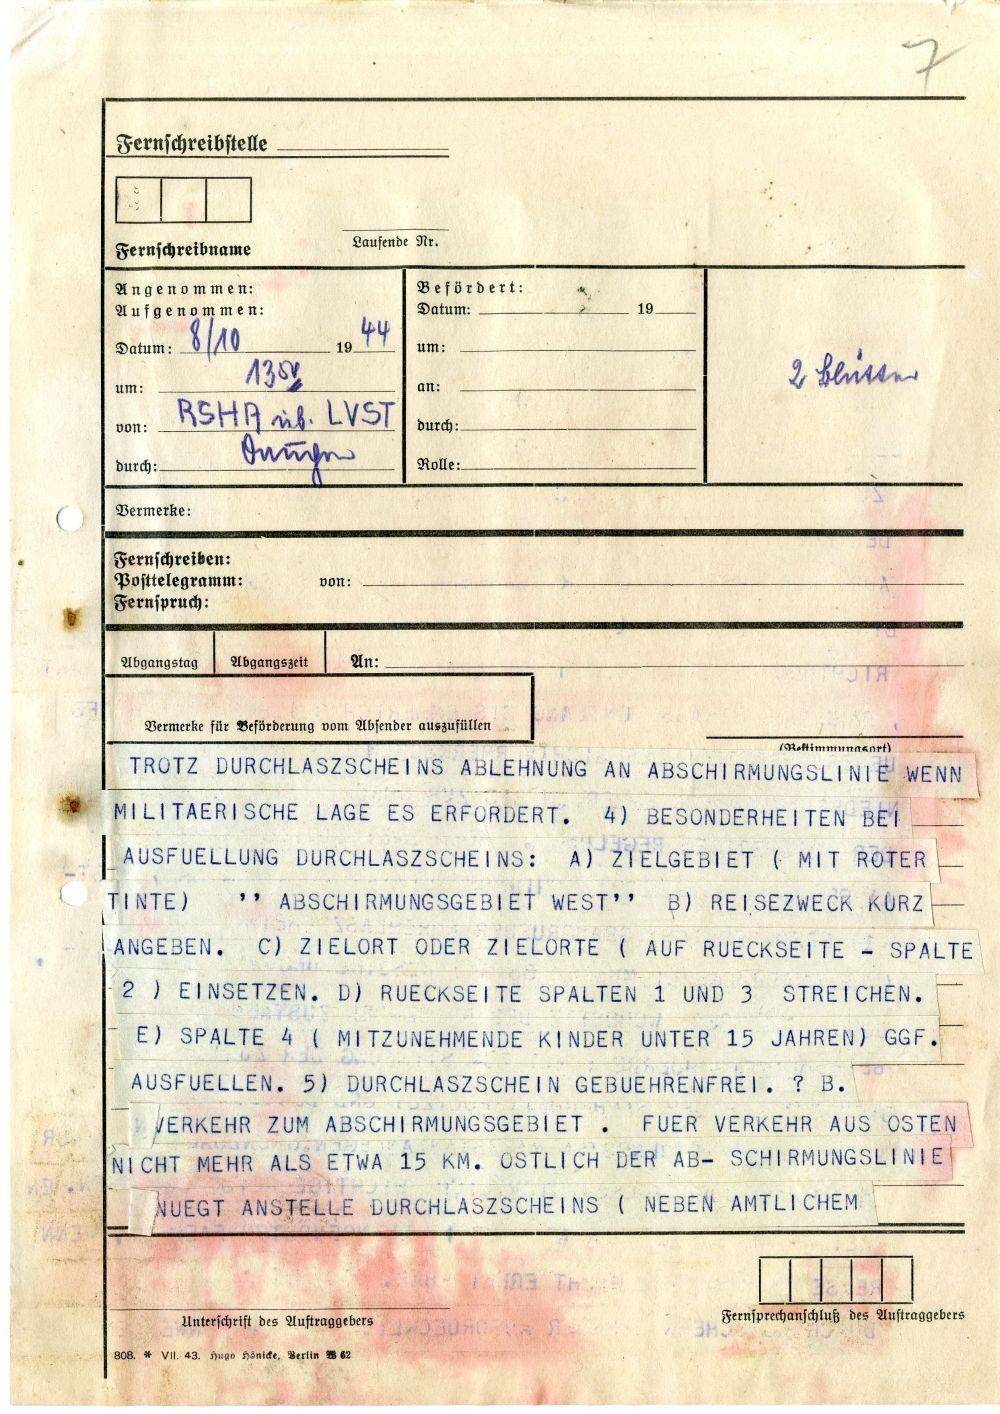 7
Fernschreibstelle
Fernschreibname
Laufende Nr.
Angenommen:
Aufgenommen:
Datum: 8/10 1944
um: 13
von: RSHA üb. LVST
durch:
Befördert:
Datum: 19
um:
an:
durch:
Rolle:
2 Blätter
Vermerke:
Fernschreiben:
Posttelegramm: von:
Fernspruch:
Abgangstag Abgangszeit An:
Vermerke für Beförderung vom Absender auszufüllen
(Bestimmungsort)
TROTZ DURCHLASZSCHEINS ABLEHNUNG AN ABSCHIRMUNGSLINIE WENN
MILITAERISCHE LAGE ES ERFORDERT. 4) BESONDERHEITEN BEI
AUSFUELLUNG DURCHLASZSCHEINS: A) ZIELGEBIET ( MIT ROTER
TINTE) '' ABSCHIRMUNGSGEBIET WEST'' B) REISEZWECK KURZ
ANGEBEN. C) ZIELORT ODER ZIELORTE ( AUF RUECKSEITE - SPALTE
2 ) EINSETZEN. D) RUECKSEITE SPALTEN 1 UND 3 STREICHEN.
E) SPALTE 4 ( MITZUNEHMENDE KINDER UNTER 15 JAHREN) GGF.
AUSFUELLEN. 5) DURCHLASZSCHEIN GEBUEHRENFREI. ? B.
VERKEHR ZUM ABSCHIRMUNGSGEBIET . FUER VERKEHR AUS OSTEN
NICHT MEHR ALS ETWA 15 KM. OSTLICH DER AB- SCHIRMUNGSLINIE
NUEGT ANSTELLE DURCHLASZSCHEINS ( NEBEN AMTLICHEM
Unterschrift des Auftraggebers
Fernsprechanschluß des Auftraggebers
808. * VII. 43. Hugo Hönicke, Berlin W 62